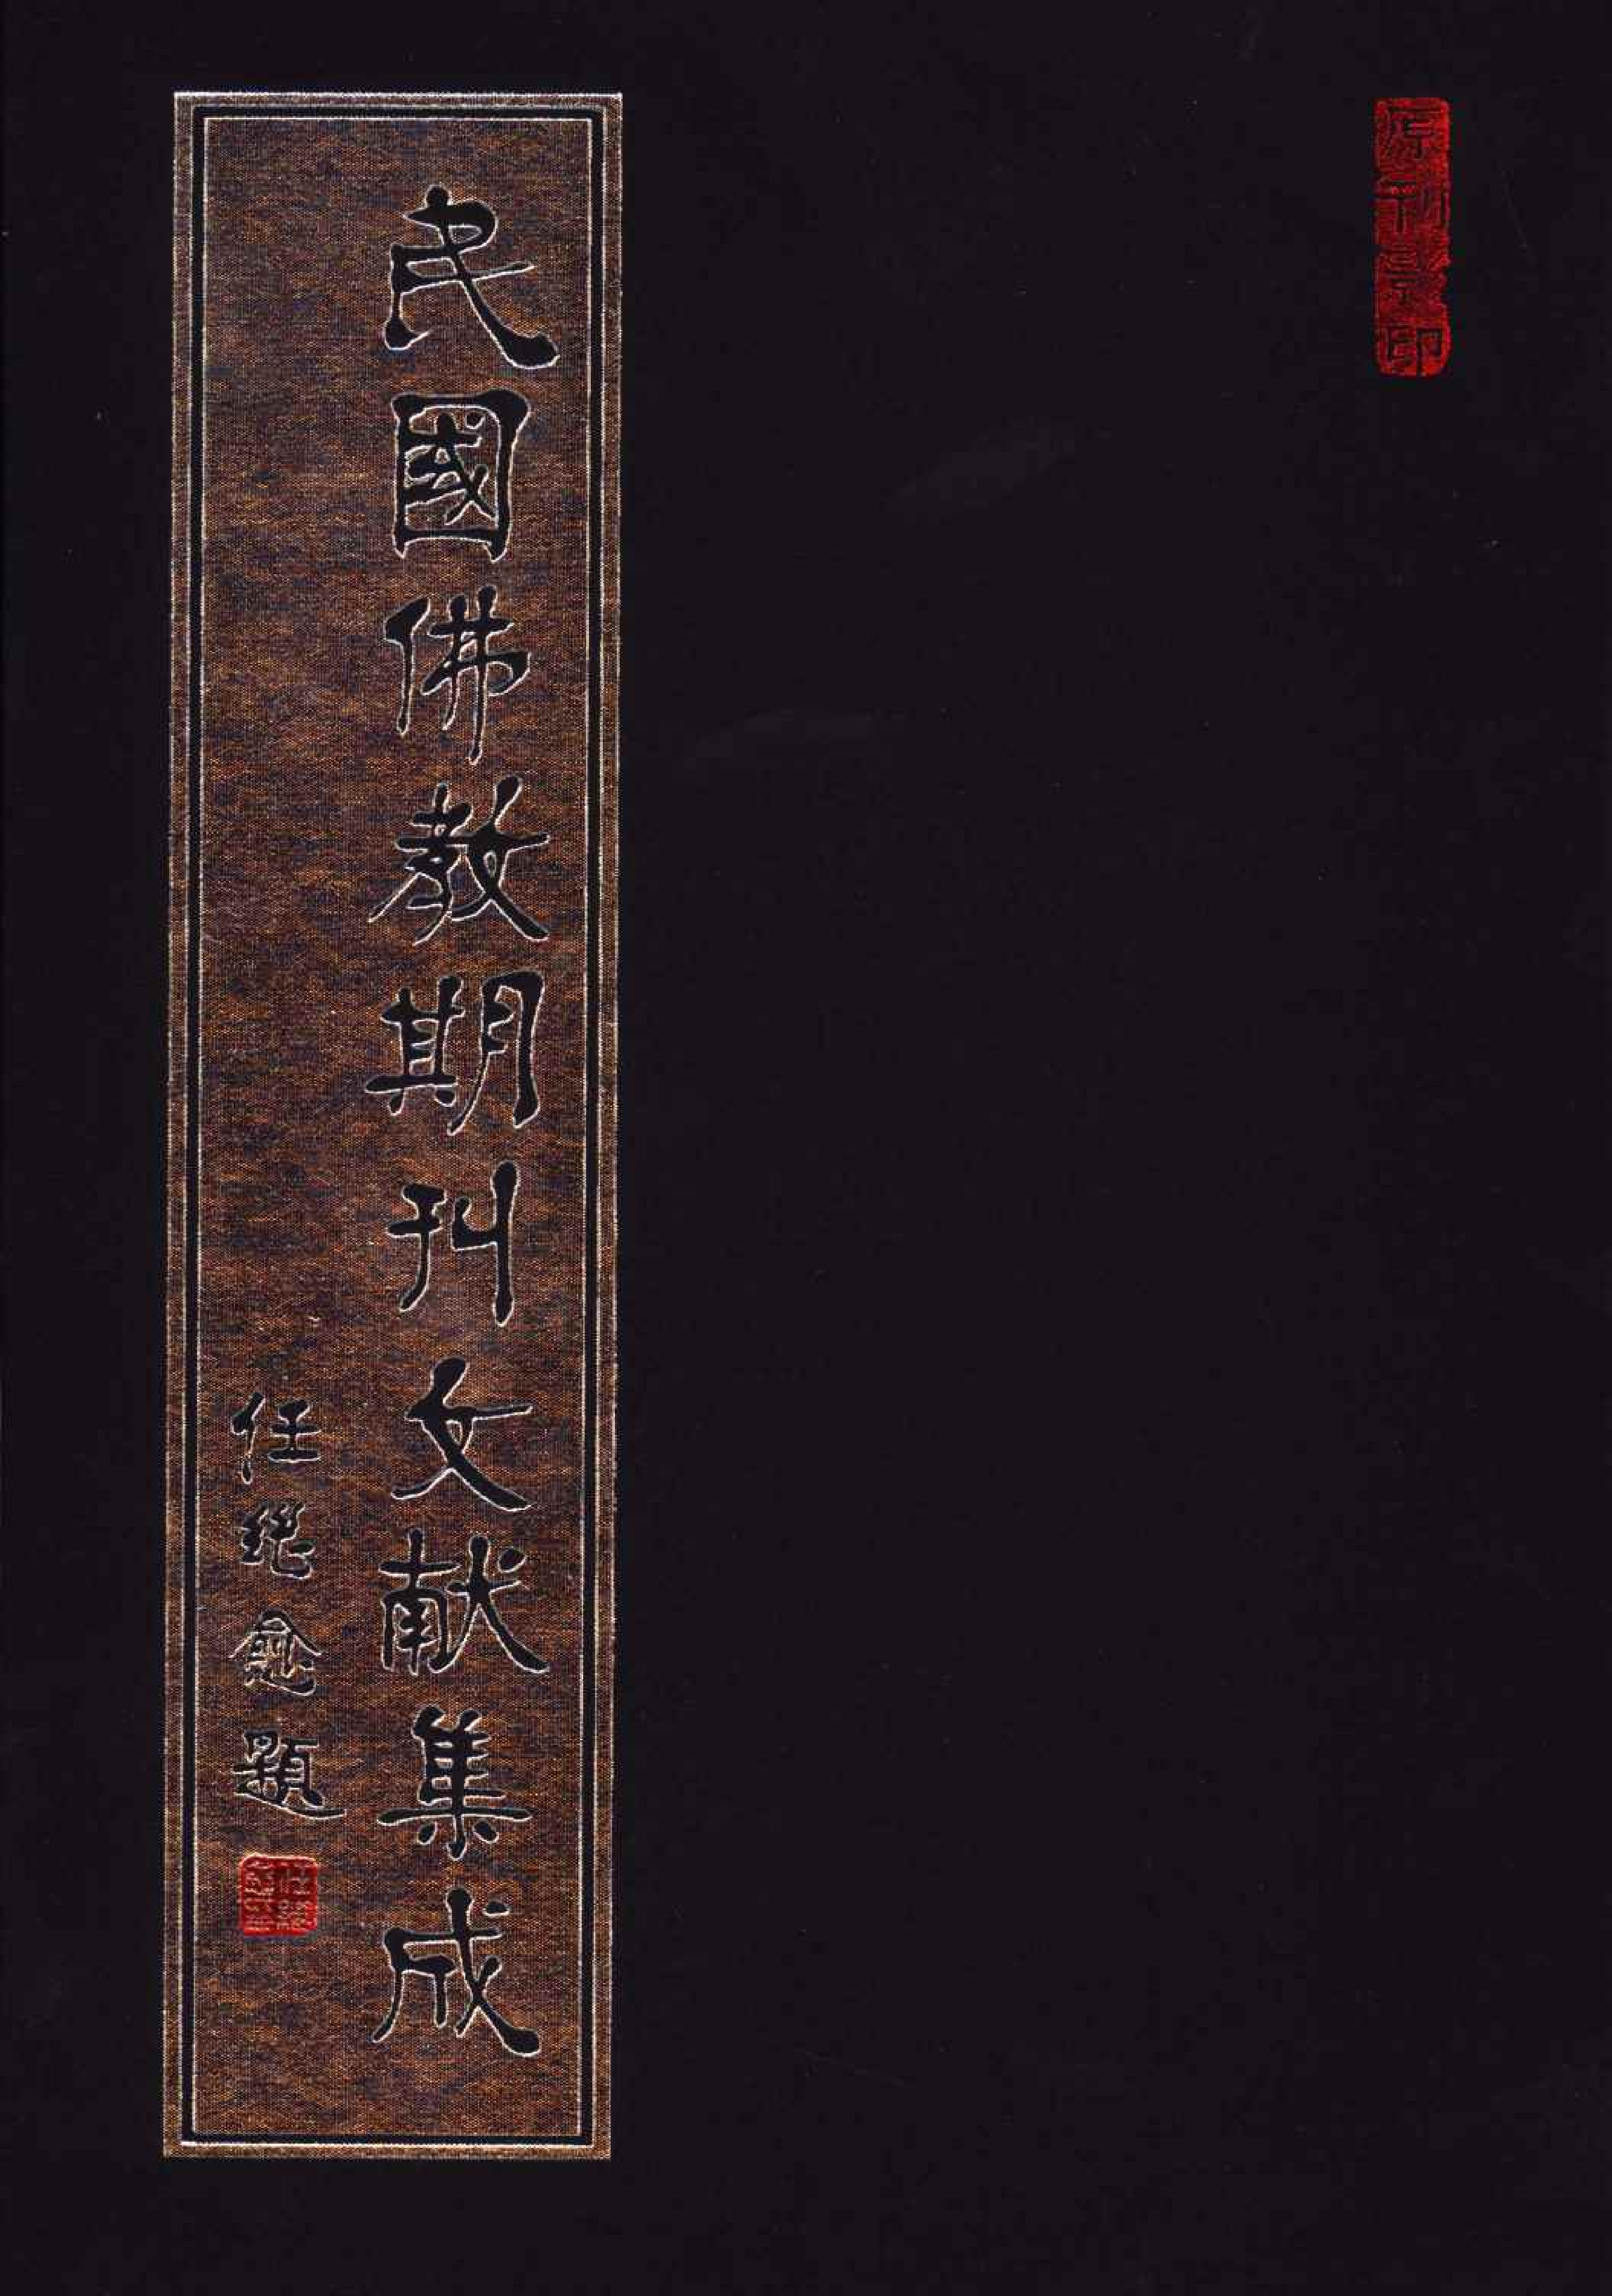 原刊影印
民國佛教期刊文献集成
任継愈題